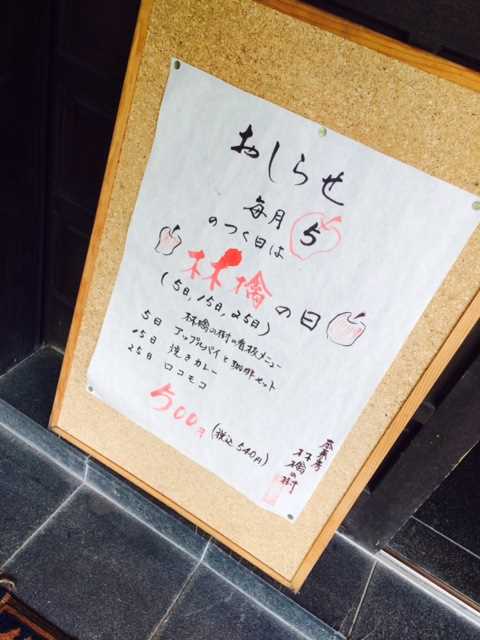 おしらせ
毎月 5
のつく日は
林檎の日
(5日,15日,25日)
林檎の樹の看板メニュー
5日 アップルパイと珈琲セット
15日 焼きカレー
25日 ロコモコ
500円
(税込 540円)
林檎の樹